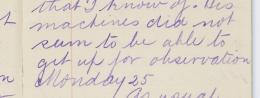 that I know of. His
machines did not
seem to be able to
get up for observation
Monday 25
As usual